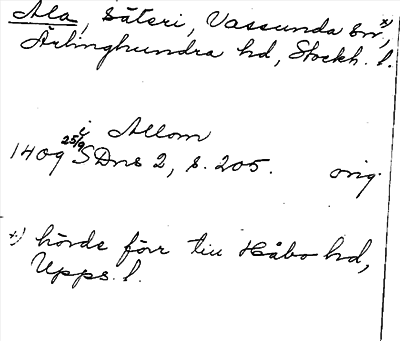 Ala, Säteri, Vassunda sn x),
Ärlinghundra hd, Stockh. l.
i Allom
1409 25/9 SDns 2, s. 205. orig.
x) hörde förr till Håbo hd,
Upps. l.